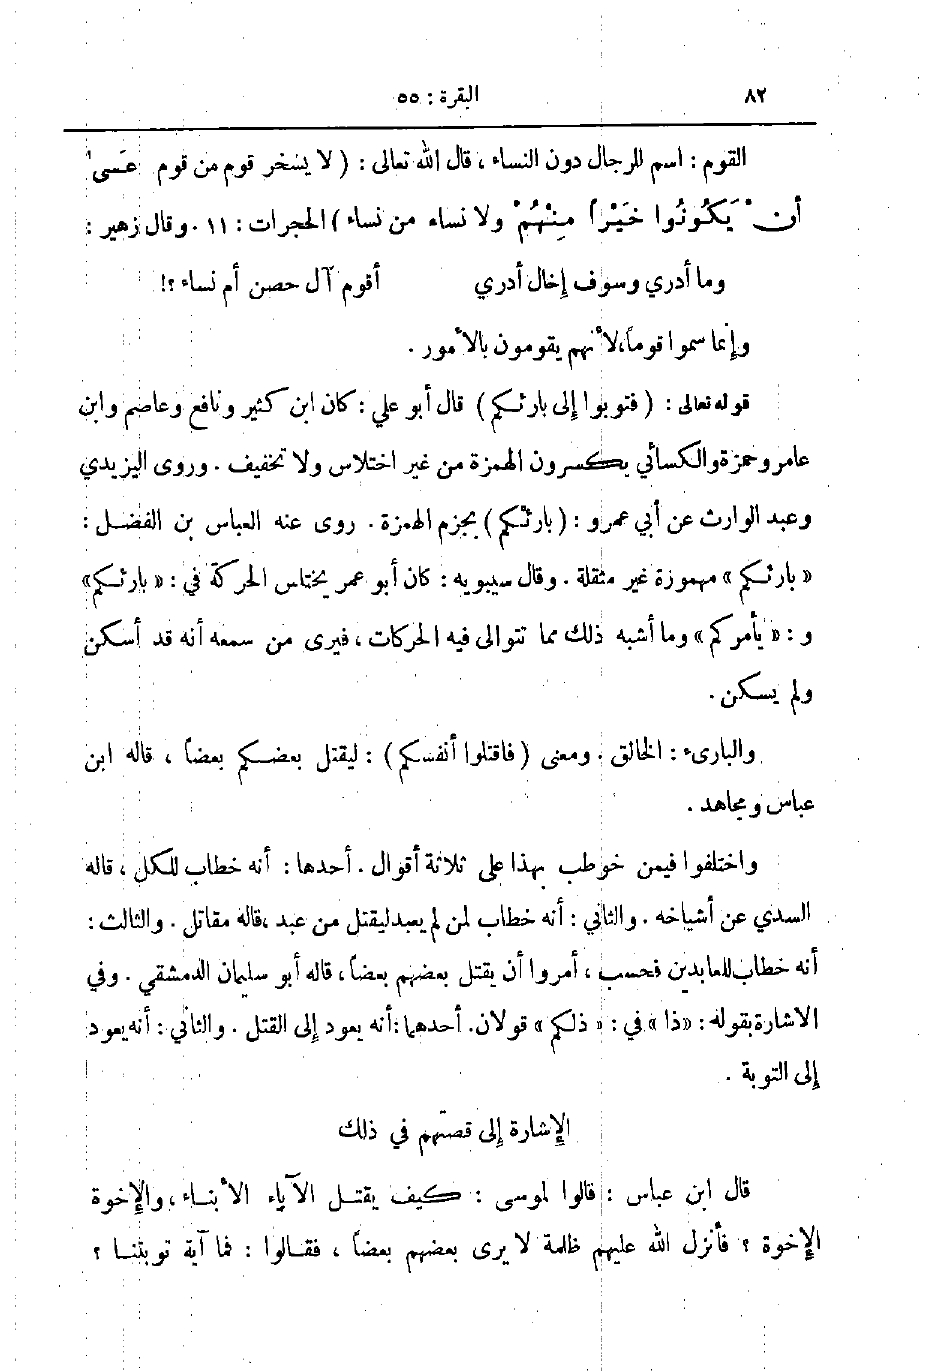 ٨٢ البقرة : ٥٥
القوم : اسم للرجال دون النساء ، قال الله تعالى : ( لا يسخر قوم من قوم عَسى
أن يَكُونُوا خَيْراً مِنْهُمْ ولا نساء من نساء ) الحجرات : ١١ . وقال زهير :
وما أدري وسوف إخال أدري أقوم آل حصن أم نساء ؟!
وإنما سموا قوماً، لأنهم يقومون بالأمور .
قوله تعالى : ( فتوبوا إلى بارئكم ) قال أبو علي : كان ابن كثير ونافع وعاصم وابن
عامر وحمزة والكسائي يكسرون الهمزة من غير اختلاس ولا تخفيف . وروى اليزيدي
وعبد الوارث عن أبي عمرو : ( بارئكم ) بجزم الهمزة . روى عنه العباس بن الفضل :
« بارئكم » مهموزة غير مثقلة . وقال سيبويه : كان أبو عمر يختلس الحركة في : « بارئكم »
و : « يأمركم » وما أشبه ذلك مما تتوالى فيه الحركات ، فيرى من سمعه أنه قد أسكن
ولم يسكن .
والبارىء : الخالق . ومعنى ( فاقتلوا أنفسكم ) : ليقتل بعضكم بعضاً ، قاله ابن
عباس ومجاهد .
واختلفوا فيمن خوطب بهذا على ثلاثة أقوال . أحدها : أنه خطاب للكل ، قاله
السدي عن أشياخه . والثاني : أنه خطاب لمن لم يعبد ليقتل من عبد ، قاله مقاتل . والثالث :
أنه خطاب للعابدين فحسب ، أمروا أن يقتل بعضهم بعضاً ، قاله أبو سليمان الدمشقي . وفي
الاشارة بقوله : «ذا » في : « ذلكم » قولان. أحدهما : أنه يعود إلى القتل . والثاني : أنه يعود
إلى التوبة .
الإشارة إلى قصتهم في ذلك
قال ابن عباس : قالوا لموسى : كيف يقتل الآباء الأبناء ، والإخوة
الإخوة ؟ فأنزل الله عليهم ظلمة لا يرى بعضهم بعضاً ، فقالوا : فما آية توبتنا ؟